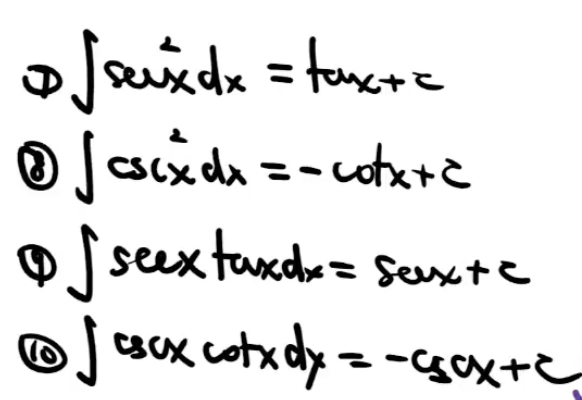 ⑦ ∫ sec²x dx = tanx + c
⑧ ∫ csc²x dx = - cotx + c
⑨ ∫ secx tanx dx = secx + c
⑩ ∫ cscx cotx dy = - cscx + c